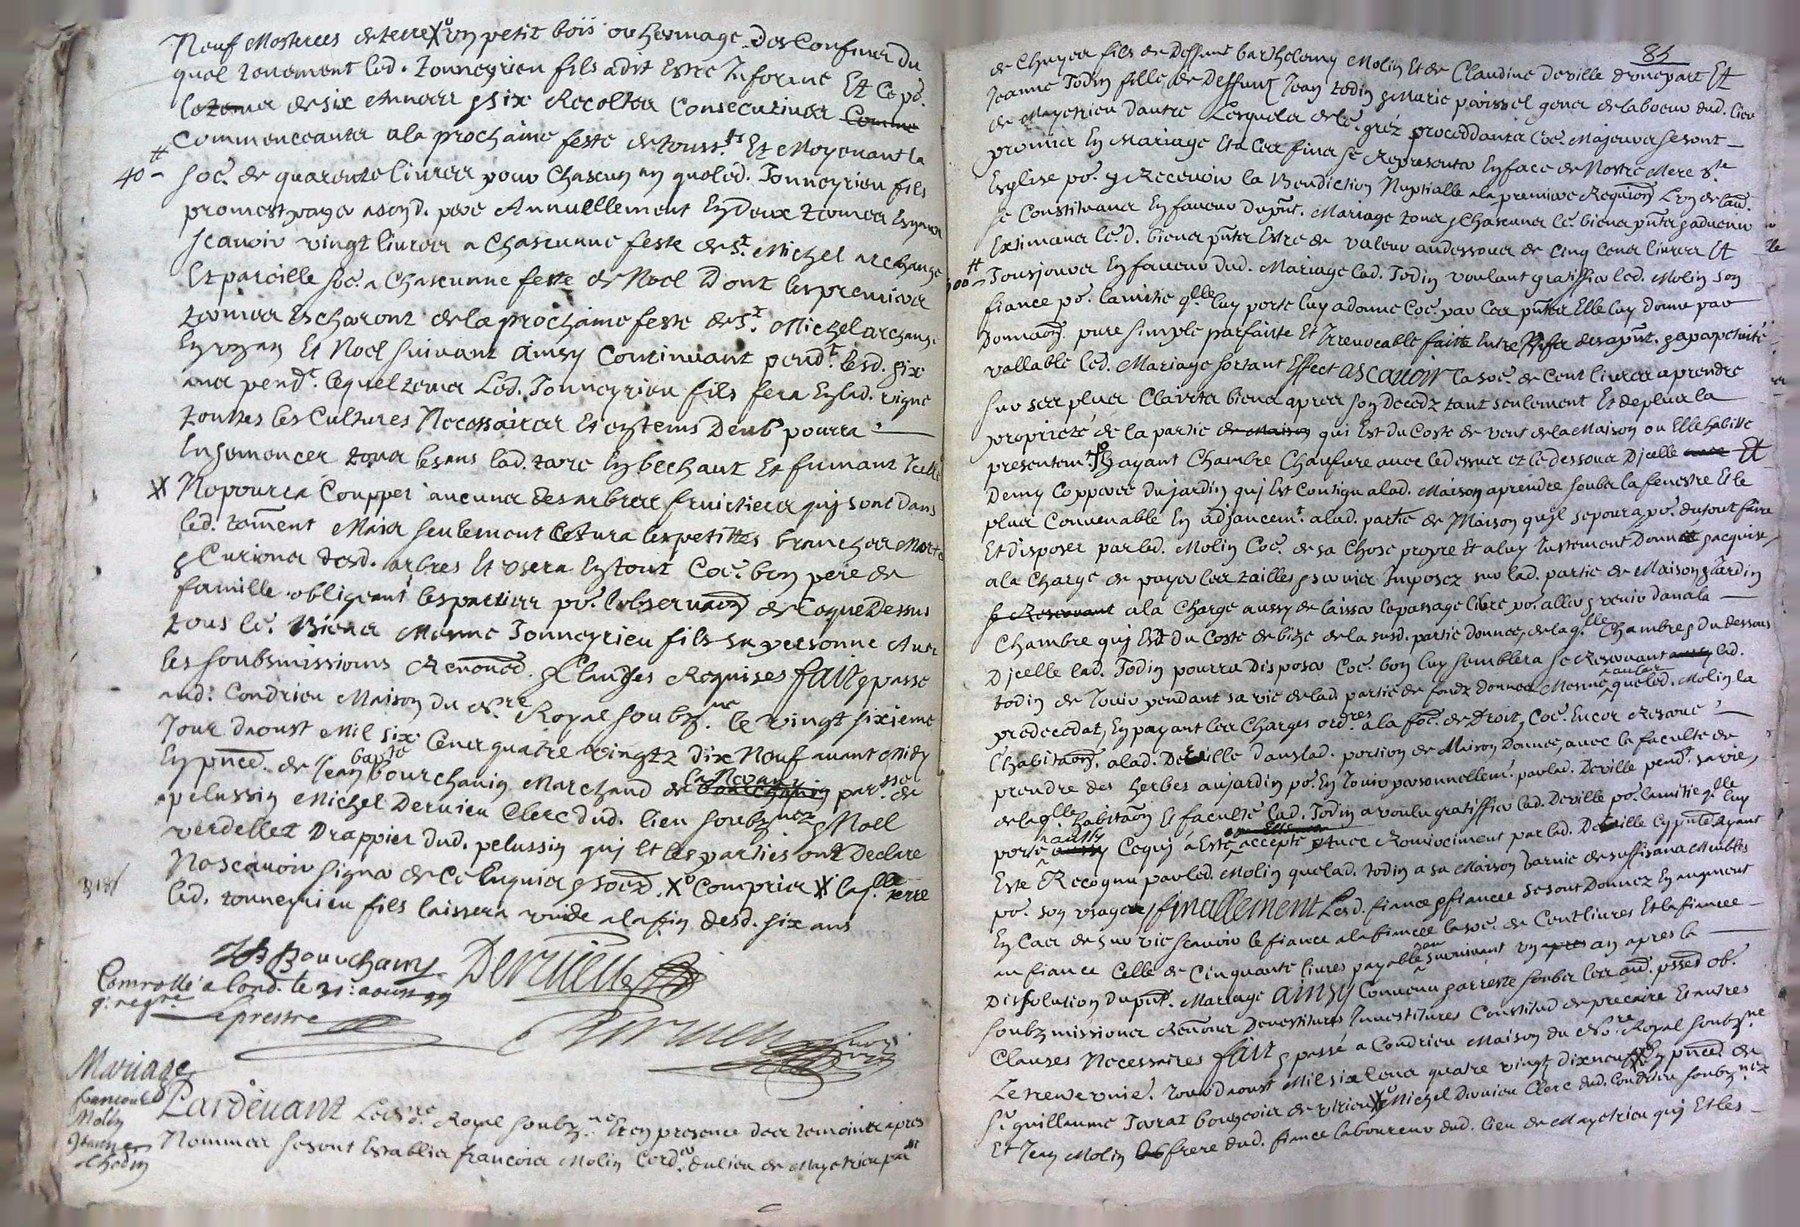 Neuf Mesterees de terre X° un petit bois ou hermage Des Confines du
quel tenement led. Tonneyrieu fils a dit Estre Informé Et Ce po.
de six Annees & six Recoltes Consecutives Comme
Commenceantes a la prochaine feste de touss.ts Et Moyenant la
# 40 - soe. de quarente livres pour Chascun an que led. Tonneyrieu fils
promest payer a sond. pere Annuellement En Deux termes Esgaux
scavoir vingt livres a Chascunne feste de St. Michel archange
Et pareille soe. a Chascunne feste de Noel Dont les premiers
termes Escheront de la prochaine feste de St. Michel archange
En un an Et Noel suivant Ainsy Continuant pend.t lesd. six
ans pend.t lequel temps Led. Tonneyrieu fils fera En lad. vigne
touttes les Cultures Necessaires Et en tems Deub pourra
Ensemencer tous les ans lad. terre En bechant Et fumant Icelle
X Ne pourra Coupper aucunes des arbres fruictiers qui sont Dans
led. tenement Mais seulement Cessura les petittes branches Mortes
& Curiones desd. arbres Et usera En tout Coe. bon pere de
famille obligeant les parties po. l'observaon de Ce que Dessus
tous le. Biens Mesme Tonneyrieu fils sa personne Avec
les soubsmissions Renoncd. & Clauses Requises fait & passé
aud. Condrieu Maison du No.re Royal soubz.né le vingt sixieme
Jour d'aoust Mil six Cens quatre vingtz dix Neuf avant Midy
En pñce. de Jean bapte bourchanin Marchand de par.sse de
pelussin Michel Dervieu Clerc dud. lieu soubz.nez & Noel
verdellet Drappier dud. pelussin qui Et les parties ont Declare
Ne scavoir signer de Ce Enquis & soed. X° Compris X lasq.lle terre
led. tonneyrieu fils laissera vuide a la fin desd. six ans
JB Bourchany Dervieu
Comrollé a Cond. le 31e. aoust 99
Leprestre
Dervieu
Mariage
francois Molin
Jeanne Thodin
Pardevant Led. no.re Royal soubz.né Et en presence des temoins apres
Nommes se sont Establies francois Molin Cord.r du lieu de Mayetrieu par.sse
85
de Chuyer fils de Deffunt barthelemy Molin Et de Claudine Deville d'une part Et
Jeanne Todin fille de Deffunt Jean todin & Marie poissel gens de labeur dud. lieu
de Mayetrieu d'autre Lesquels de le. gréz proceddants Coe. Majeurs se sont
promis En Mariage Et a Ces fins se Representer En face de Nostre Mere S.te
Esglise po. y Recevoir la Benediction Nuptialle a la premiere Requion L'un de l'aut.
se Constituants En faveur du pnt. Mariage tous & Chascuns le. biens pnts & advenir
Estimans le.d. biens pnts Estre de valeur audessous de Cinq Cens livres Et
# 100 - Tousjours En faveur dud. Mariage lad. Todin voulant gratiffier led. Molin son
fiancé po. lamitie q.lle luy porte luy a donné Coe. par Ces pntes Elle luy donne par
Donnaon pure simple parfaite Et Irrevocable faite Entre Vifs desapnt. & a perpetuité
vallable led. Mariage sortant Effect ascavoir la soe. de Cent livres a prendre
sur ses plus Clairts biens apres son Decedz tant seulement Et de plus la
proprieté de la partie de Maison qui Est du Costé de vent de la Maison ou Elle habitte
presentemt. y ayant Chambre Chaufure avec le dessus et le dessous D'icelle Et
Demy Copperée du jardin qui Est Contigu a lad. Maison a prendre soubs la fenestre Et le
plus Convenable En adjancemt. a lad. partie de Maison qu'il se poura po. du tout faire
Et disposer par led. Molin Coe. de sa Chose propre Et a luy Justement Donnée & acquise
a la Charge de payer les tailles & servis Imposez sur lad. partie de Maison & Jardin
se Reservant a la Charge aussy de laisser le passage libre po. aller & venir dans la
Chambre qui Est du Costé de bize de la susd. partie donnée, de laq.lle Chambre & du dessous
D'icelle lad. Todin pourra Disposer Coe. bon luy semblera se Reservant lad.
todin de Jouir pendant sa vie de lad. partie de fondz donnée Mesme au cas que led. Molin la
predecedat, En payant les Charges ord.res a la foe. de Droit, Coe. Encor Reserve
l'habitaon. a lad. Deville dans lad. portion de Maison Donnée, avec la faculte de
prendre des herbes au jardin po. En Jouir personnellemt. par lad. Deville pend.t sa vie,
de laq.lle habitaon Et faculté lad. Todin a voulu gratiffier lad. Deville po. lamitie q.lle luy
porte aussy Ce qui a Esté accepté Avec Remerciment par lad. Deville Cy pnte Ayant
Esté Recognu par led. Molin que lad. todin a sa Maison Garnie de suffisans Meubles
po. son usage, finallement Lesd. fiance & fiancée se sont Donnez En augment
En Cas de survie scavoir le fiancé a la fiancée la soe. de Cent livres Et la fiancée
au fiance Celle de Cinquante livres payable au survivant un apres an apres la
Dissolution du pnt. Mariage Ainsy Convenu & arresté soubs les aud. pssed ob.
soubzmissions Renõns Devestitures Investitures Constitud de precaire Et autres
Clauses Necessaires fait & passé a Condrieu Maison du No.re Royal soubz.né
Le treizeme. Jour d'aoust Mil six Cens quatre vingt dix neuf En pñce. de
Sr. guillaume Javrat bourgeois de virieu Michel Dervieu Clerc dud. Condrieu soubz.nez
Et Jean Molin frere dud. fiance laboureur dud. lieu de Mayetrieu qui Et les